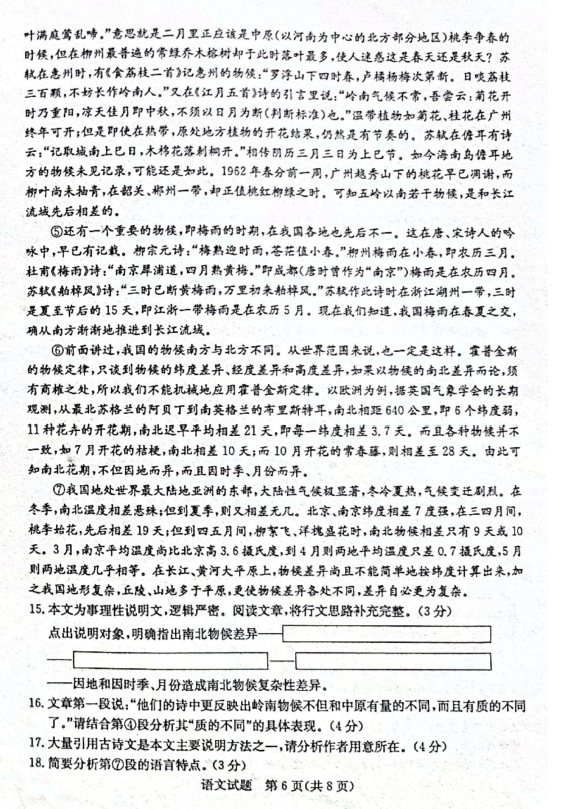 叶满庭莺乱啼。”意思就是二月里正应该是中原(以河南为中心的北方部分地区)桃李争春的
时候,但在柳州最普遍的常绿乔木榕树却于此时落叶最多,使人迷惑这是春天还是秋天?苏
轼在惠州时,有《食荔枝二首》记惠州的物候:“罗浮山下四时春,卢橘杨梅次第新。日啖荔枝
三百颗,不妨长作岭南人。”又在《江月五首》诗的引言里说:“岭南气候不常,吾尝云:菊花开
时乃重阳,凉天佳月即中秋,不须以日月为断(判断标准)也。”温带植物如菊花、桂花在广州
终年可开;但是即使在热带,原处地方植物的开花结果,仍然是有节奏的。苏轼在儋耳有诗
云:“记取城南上巳日,木棉花落刺桐开。”相传阴历三月三日为上巳节。如今海南岛儋耳地
方的物候未见记录,可能还是如此。1962年春分前一周,广州越秀山下的桃花早已凋谢,而
柳叶尚未抽青,在韶关、郴州一带,却正值桃红柳绿之时。可知五岭以南若干物候,是和长江
流域先后相差的。
⑤还有一个重要的物候,即梅雨的时期,在我国各地也先后不一。这在唐、宋诗人的吟
咏中,早已有记载。柳宗元诗:“梅熟迎时雨,苍茫值小春。”柳州梅雨在小春,即农历三月。
杜甫《梅雨》诗:“南京犀浦道,四月熟黄梅。”即成都(唐时曾作为“南京”)梅雨是在农历四月。
苏轼《舶棹风》诗:“三时已断黄梅雨,万里初来舶棹风。”苏轼作此诗时在浙江湖州一带,三时
是夏至节后的15天,即江浙一带梅雨是在农历5月。现在我们知道,我国梅雨在春夏之交,
确从南方渐渐地推进到长江流域。
⑥前面讲过,我国的物候南方与北方不同。从世界范围来说,也一定是这样。霍普金斯
的物候定律,只谈到物候的纬度差异、经度差异和高度差异,如果以物候的南北差异而论,须
有商榷之处,所以我们不能机械地应用霍普金斯定律。以欧洲为例,据英国气象学会的长期
观测,从最北苏格兰的阿贝丁到南英格兰的布里斯特耳,南北相距640公里,即6个纬度弱,
11种花卉的开花期,南北迟早平均相差21天,即每一纬度相差3.7天。而且各种物候并不
一致,如7月开花的桔梗,南北相差10天;而10月开花的常春藤,则相差至28天。由此可
知南北花期,不但因地而异,而且因时季、月份而异。
⑦我国地处世界最大陆地亚洲的东部,大陆性气候极显著,冬冷夏热,气候变迁剧烈。在
冬季,南北温度相差悬殊;但到夏季,则又相差无几。北京、南京纬度相差7度强,在三四月间,
桃李始花,先后相差19天;但到四五月间,柳絮飞、洋槐盛花时,南北物候相差只有9天或10
天。3月,南京平均温度尚比北京高3.6摄氏度,到4月则两地平均温度只差0.7摄氏度,5月
则两地温度几乎相等。在长江、黄河大平原上,物候差异尚且不能简单地按纬度计算出来,加
之我国地形复杂,丘陵、山地多于平原,更使物候差异各处不同,差异自必更为复杂。
15.本文为事理性说明文,逻辑严密。阅读文章,将行文思路补充完整。(3分)
点出说明对象,明确指出南北物候差异——
—— ——
——因地和因时季、月份造成南北物候复杂性差异。
16.文章第一段说:“他们的诗中更反映出岭南物候不但和中原有量的不同,而且有质的不同
了。”请结合第④段分析其“质的不同”的具体表现。(4分)
17.大量引用古诗文是本文主要说明方法之一,请分析作者用意所在。(4分)
18.简要分析第⑦段的语言特点。(3分)
语文试题 第6页(共8页)